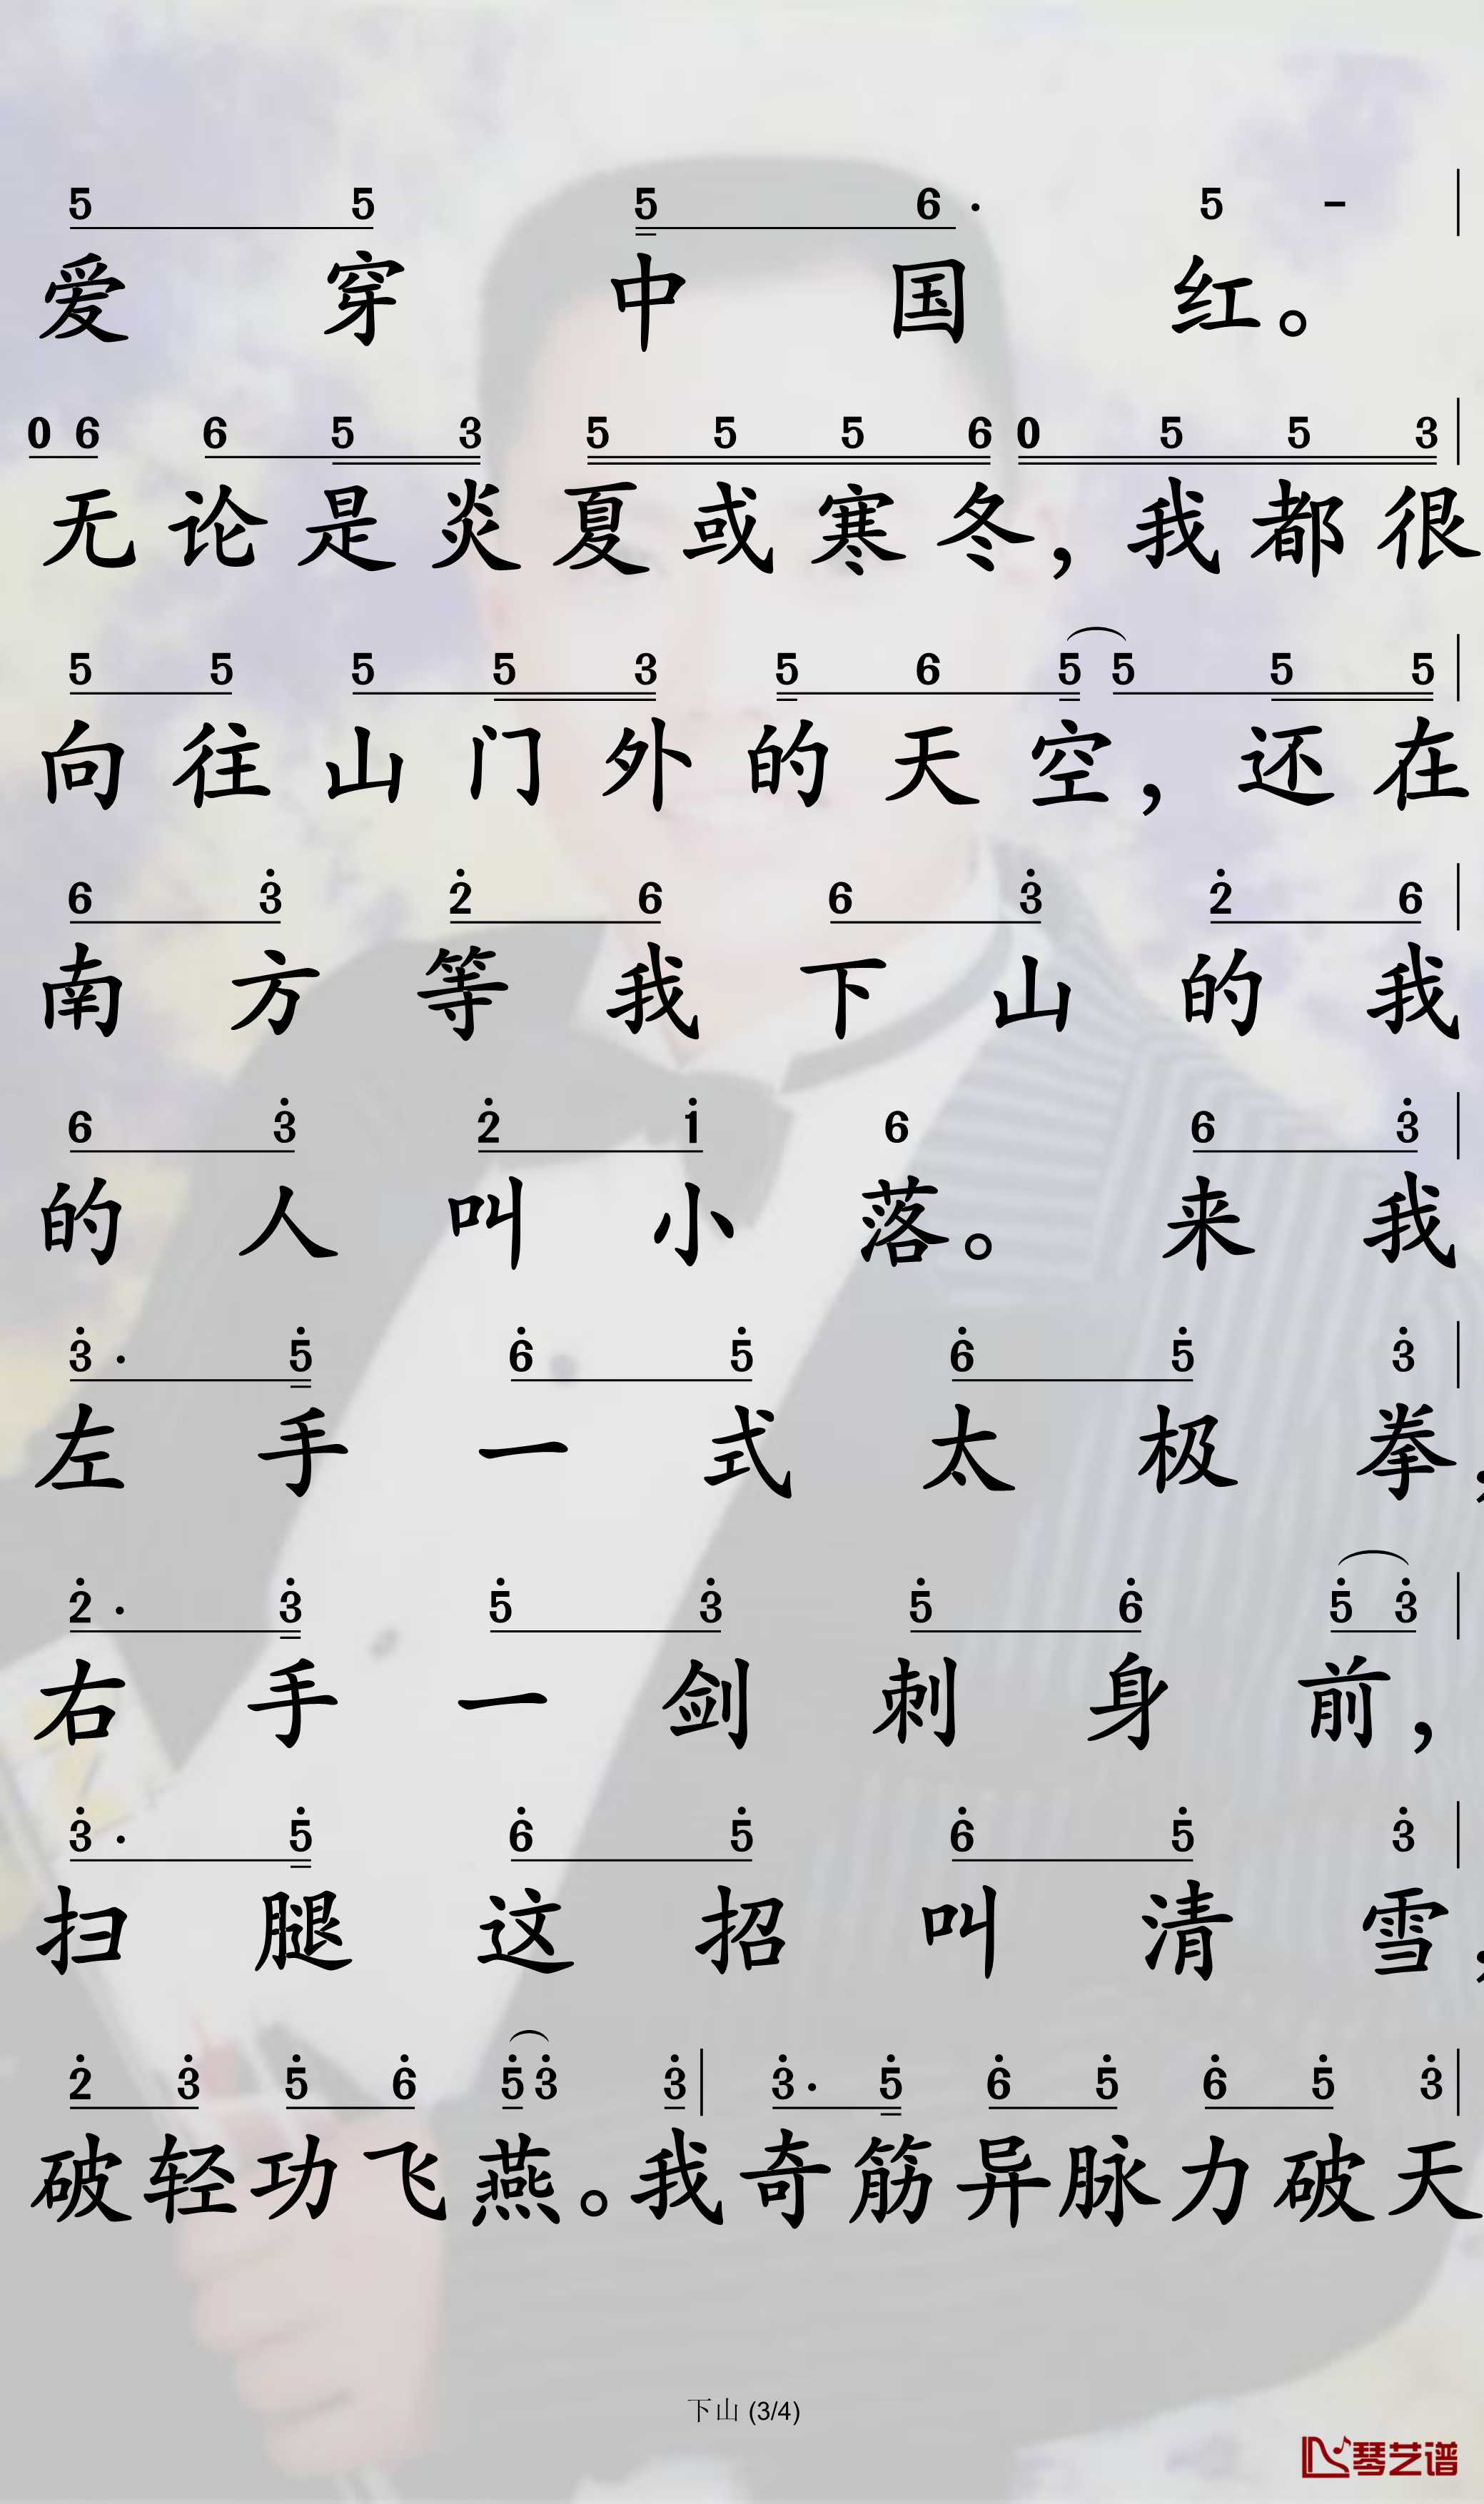 5 5 5 6· 5 -
爱穿中国红。
0 6 6 5 3 5 5 5 6 0 5 5 3
无论是炎夏或寒冬，我都很
5 5 5 5 3 5 6 5 5 5 5
向往山门外的天空，还在
6 3̇ 2̇ 6 6 3̇ 2̇ 6
南方等我下山的我
6 3̇ 2̇ 1̇ 6 6 3̇
的人叫小落。来我
3̇· 5̇ 6̇ 5̇ 6̇ 5̇ 3̇
左手一式太极拳，
2̇· 3̇ 5̇ 3̇ 5̇ 6̇ 5̇ 3̇
右手一剑刺身前，
3̇· 5̇ 6̇ 5̇ 6̇ 5̇ 3̇
扫腿这招叫清雪，
2̇ 3̇ 5̇ 6̇ 5̇ 3̇ 3̇ 3̇· 5̇ 6̇ 5̇ 6̇ 5̇ 3̇
破轻功飞燕。我奇筋异脉力破天
下山 (3/4)
琴艺谱